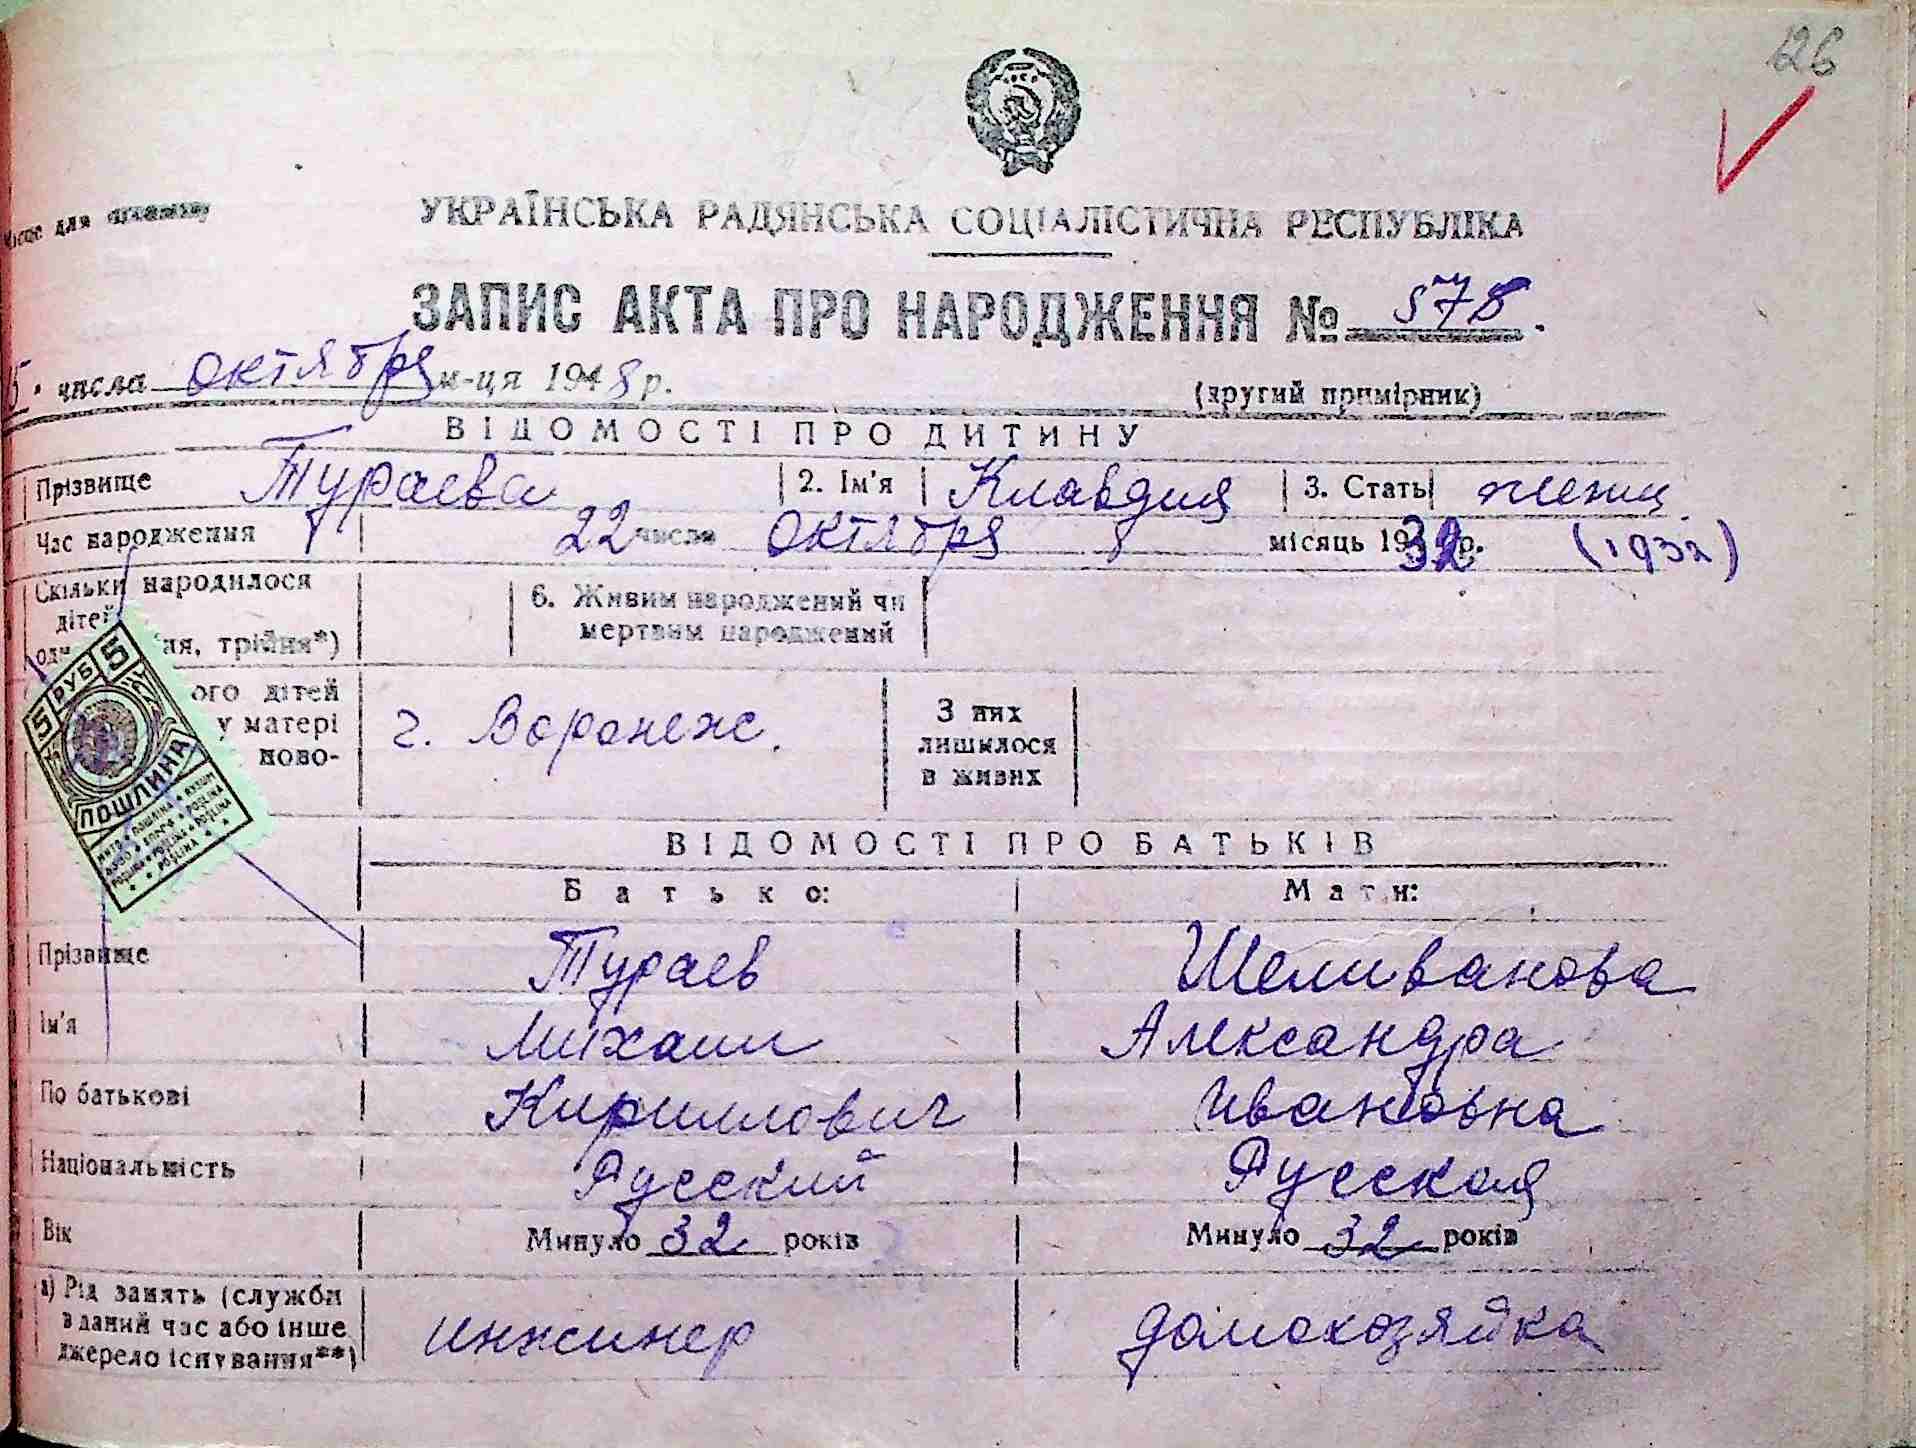 126
для
УКРАЇНСЬКА РАДЯНСЬКА СОЦІАЛІСТИЧНА РЕСПУБЛІКА
ЗАПИС АКТА ПРО НАРОДЖЕННЯ № 578.
5. числа октября м-ця 1948 р. (другий примірник)
ВІДОМОСТІ ПРО ДИТИНУ
Прізвище Тураева 2. Ім'я Клавдия 3. Стать женщ
Час народження 22 числа октября місяць 1932 р. (1932)
Скільки народилося
дітей 6. Живим народжений чи
мертвим народжений
трійня*)
ого дітей
у матері
ново-
г. Воронеж.
З них
лишилося
в живих
5 РУБ 5
ПОШЛИНА
ВІДОМОСТІ ПРО БАТЬКІВ
Батько: Мати:
Прізвище Тураев Шеливанова
Ім'я Михаил Александра
По батькові Кириллович Ивановна
Національність Русский Русская
Вік Минуло 32 років Минуло 32 років
а) Рід занять (служби
в даний час або інше
джерело існування**) инженер домохозяйка